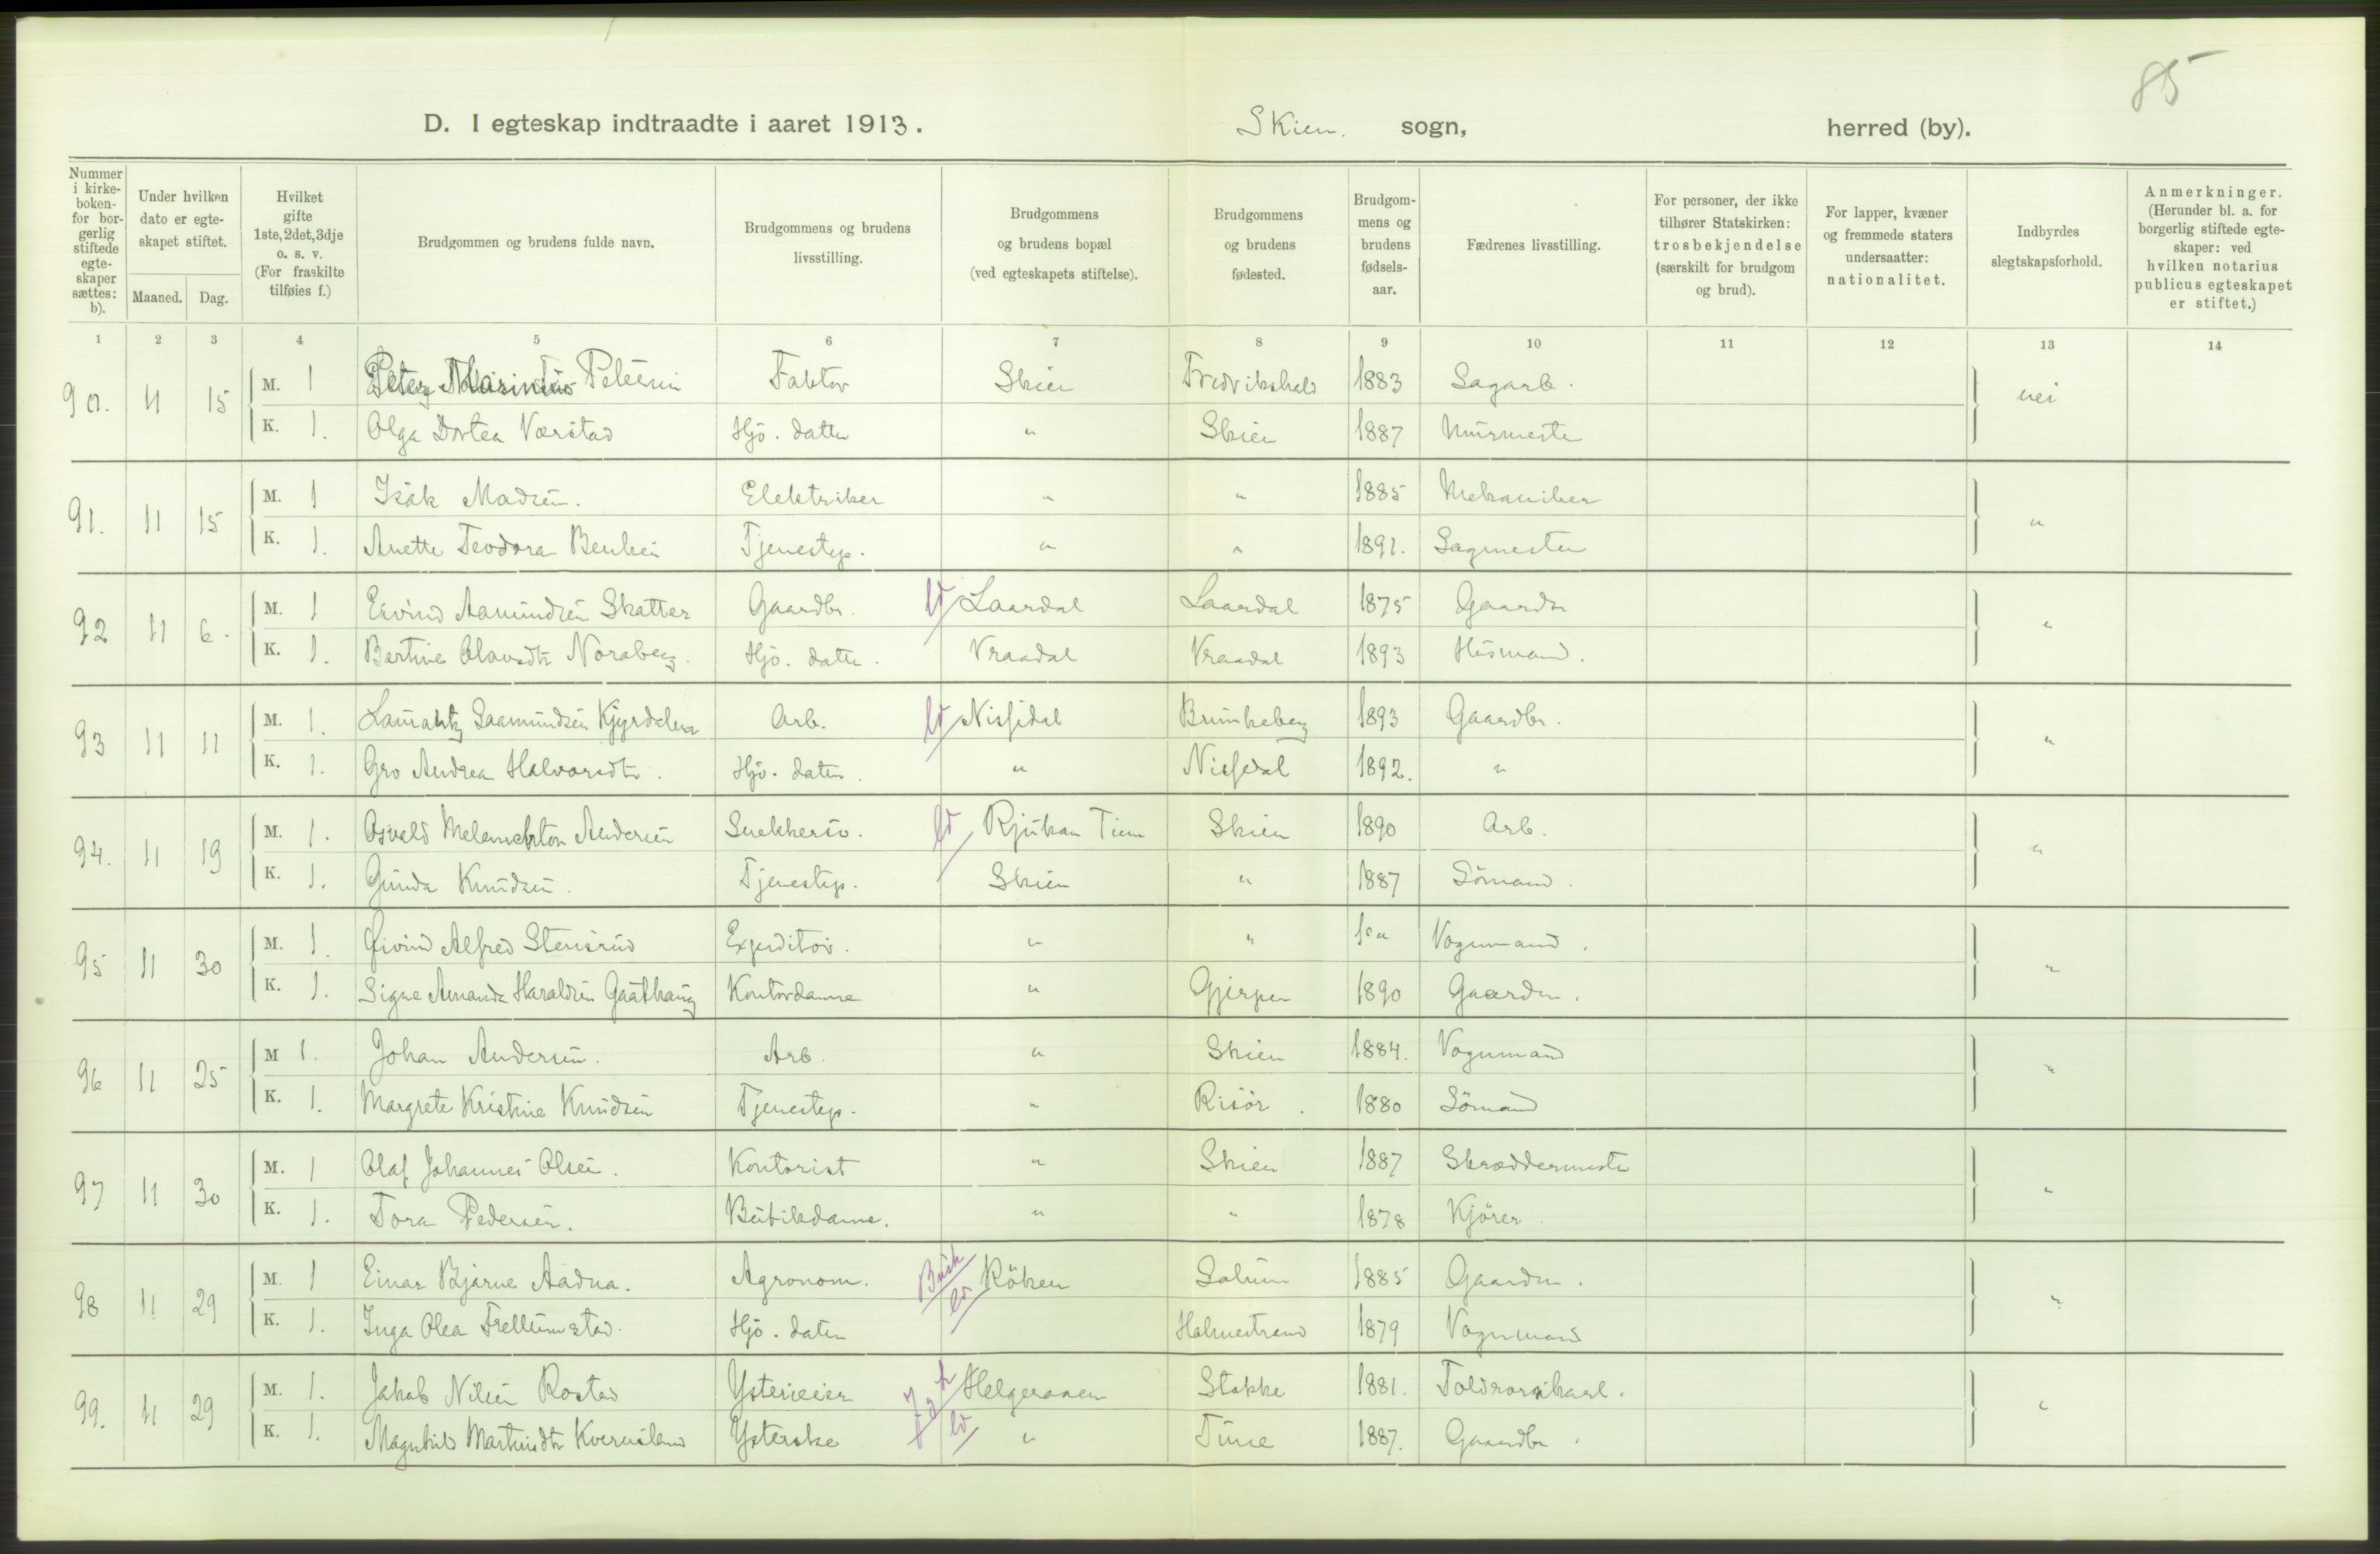 85
D. I egteskap indtraadte i aaret 1913. Skien. sogn, herred (by).
Nummer i kirke-boken- for bor-gerlig stiftede egte-skaper sættes: b). Under hvilken dato er egte-skapet stiftet. Maaned. Dag. Hvilket gifte 1ste, 2det, 3dje o. s. v. (For fraskilte tilføies f.) Brudgommen og brudens fulde navn. Brudgommens og brudens livsstilling. Brudgommens og brudens bopæl (ved egteskapets stiftelse). Brudgommens og brudens fødested. Brudgom-mens og brudens fødsels-aar. Fædrenes livsstilling. For personer, der ikke tilhører Statskirken: trosbekjendelse (særskilt for brudgom og brud). For lapper, kvæner og fremmede staters undersaatter: nationalitet. Indbyrdes slegtskapsforhold. Anmerkninger. (Herunder bl. a. for borgerlig stiftede egte-skaper: ved hvilken notarius publicus egteskapet er stiftet.)
1 2 3 4 5 6 7 8 9 10 11 12 13 14
90. 11 15 M. 1 Peter Marinius Faktor Skien Fredrikshald 1883 Sagarb. nei
K. 1. Olga Dortea Værstad Hjs. datter " Skien 1887 Murmester
91. 11 15 M. 1 Isak Madsen. Elektriker " " 1885 Mekaniker "
K. 1. Anette Teodora Tjenestep. " " 1891. Sagmester
92 11 6. M. 1 Eivind Aamundsen Skatter Gaardbr. Laardal Laardal 1875 Gaardbr "
K. 1. Bertine Olavsdtr Noraberg. Hjs. datter. Vraadal Vraadal 1893 Husmand.
93 11 11 M. 1. Saamundsen Arb. Nissedal Brunkeberg 1893 Gaardbr. "
K. 1. Gro Andrea Halvorsdtr. Hjs. datter. " Nissedal 1892. "
94. 11 19 M. 1. Osvald Melanchton Andersen Snekkersv. Rjukan Tinn Skien 1890 Arb. "
K. 1. Gunda Knudsen. Tjenestep. Skien " 1887 Sömand.
95 11 30 M. 1. Øivind Alfred Stensrud Expeditör. " " " Vognmand. "
K. 1. Signe Amanda Haraldsen Kontordame " Gjerpen 1890 Gaardbr.
96 11 25 M 1. Johan Andersen. Arb. " Skien 1884. Vognmand "
K. 1. Margrete Kristine Knudsen Tjenestep. " Risör. 1880 Sömand
97 11 30 M. 1 Olaf Johannes Olsen. Kontorist " Skien 1887 Skræddermester "
K. 1. Tora Pedersen. Butikdame. " " 1878 Kjörer.
98 11 29 M. 1 Einar Bjarne Aadna. Agronom. Busk Röken Solum 1885 Gaardbr. "
K. 1. Inga Olea Trellumstad. Hjs. datter Holmestrand 1879 Vognmand
99. 11 29 M. 1. Jakob Nilsen Rostad Ysterieier Helgeraaen Stokke 1881. Toldrorskarl. "
K. 1. Magnhild Martinsdtr Kvernsland Ysterske " Tune 1887. Gaardbr.